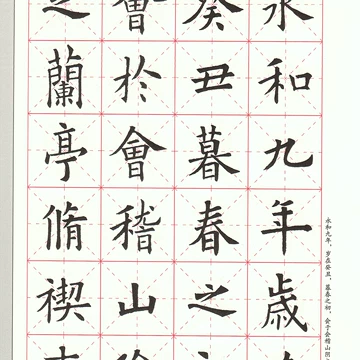 永和九年歳
癸丑暮春之
會於會稽山
之蘭亭脩禊
永和九年，岁在癸丑，暮春之初，会于会稽山阴